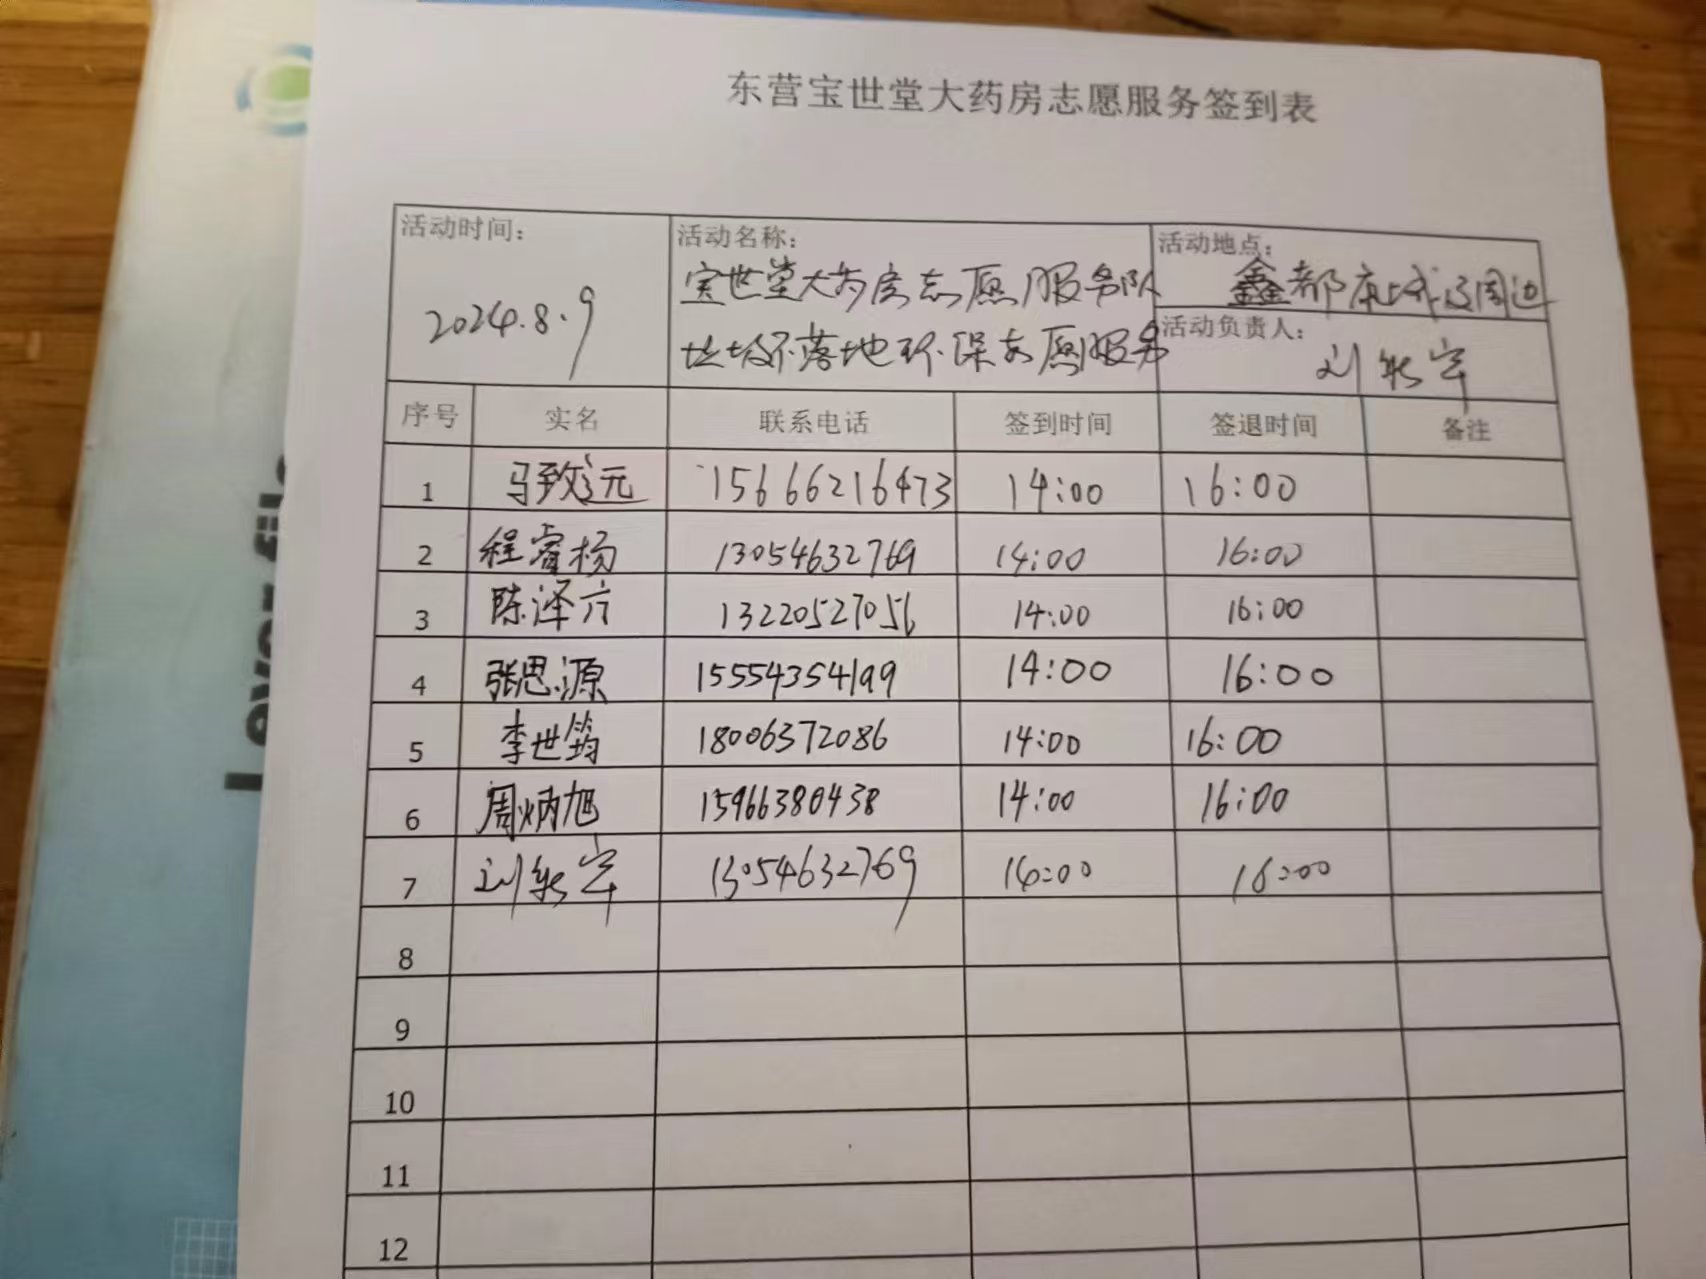 东营宝世堂大药房志愿服务签到表
活动时间：
2024.8.9
活动名称：
宝世堂大药房志愿服务队
垃圾不落地环保志愿服务
活动地点：
鑫都康城及周边
活动负责人：
序号 实名 联系电话 签到时间 签退时间 备注
1 马致远 15666216473 14:00 16:00
2 程睿杨 13054632769 14:00 16:00
3 陈泽方 13220527056 14:00 16:00
4 张思源 15554354199 14:00 16:00
5 李世筠 18006372086 14:00 16:00
6 周炳旭 15966380438 14:00 16:00
7 13054632769 14:00 16:00
8
9
10
11
12
Lever file